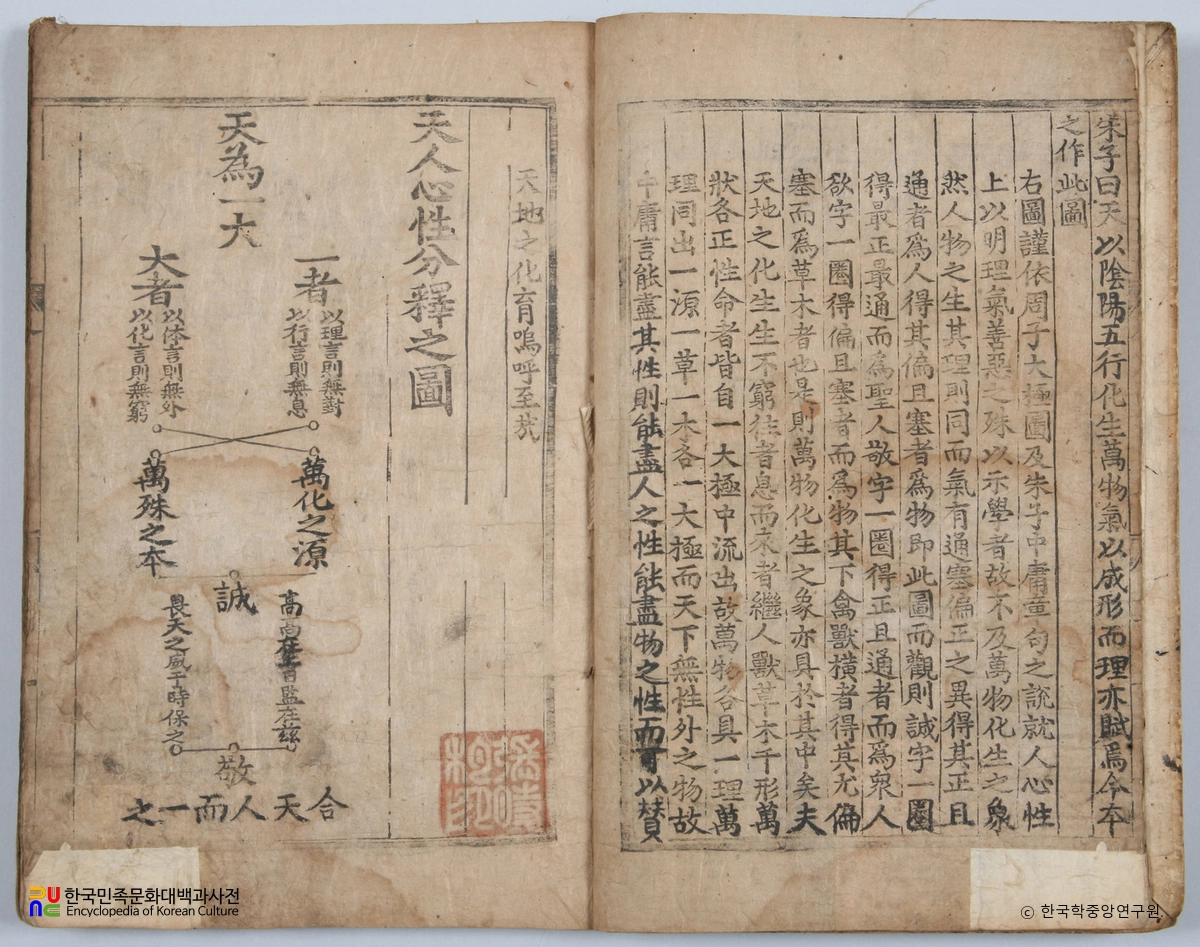 朱子曰天以陰陽五行化生萬物氣以成形而理亦賦焉今本
之作此圖
右圖謹依周子大極圖及朱子中庸章句之說就人心性
上以明理氣善惡之殊以示學者故不及萬物化生之象
然人物之生其理則同而氣有通塞偏正之異得其正且
通者爲人得其偏且塞者爲物即此圖而觀則誠字一圈
得最正最通而爲聖人敬字一圈得正且通者而爲衆人
欲字一圈得偏且塞者而爲物其下禽獸橫者得其尤偏
塞而爲草木者也是則萬物化生之象亦具於其中矣夫
天地之化生生不窮往者息而來者繼人獸草木千形萬
狀各正性命者皆自一大極中流出故萬物各具一理萬
理同出一源一草一木各一大極而天下無性外之物故
中庸言能盡其性則能盡人之性能盡物之性而可以賛
天地之化育嗚呼至哉
天人心性分釋之圖
天為一大
一者
以理言則無對
以行言則無息
大者
以体言則無外
以化言則無窮
萬化之源
萬殊之本
誠
高高在上日監在玆
畏天之威于時保之
敬
合天人而一之
한국민족문화대백과사전
Encyclopedia of Korean Culture
© 한국학중앙연구원